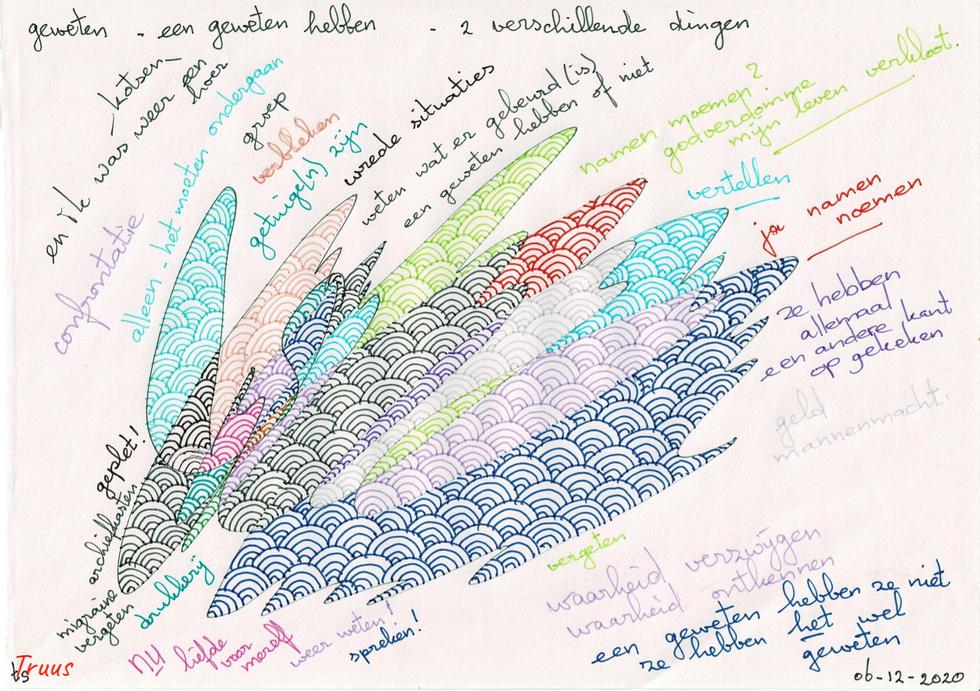 geweten - een geweten hebben - 2 verschillende dingen
- kotsen -
en ik was weer een hoer
confrontatie
alleen - het moeten ondergaan
groep
verbleken
getuige(n) zijn
wrede situaties
weten wat er gebeurd (is)
een geweten hebben of niet
namen noemen?
godverdomme
mijn leven verkloot.
vertellen
ja namen
noemen
ze hebben
allemaal
een andere kant
op gekeken
geld
mannenmacht.
geplet!
archiefkasten
migraine
vergeten
drukkerij
NU liefde
voor
mezelf
weer weten!
spreken!
vergeten
waarheid verzwijgen
waarheid ontkennen
een geweten hebben ze niet
ze hebben het wel
geweten
Truus
06-12-2020